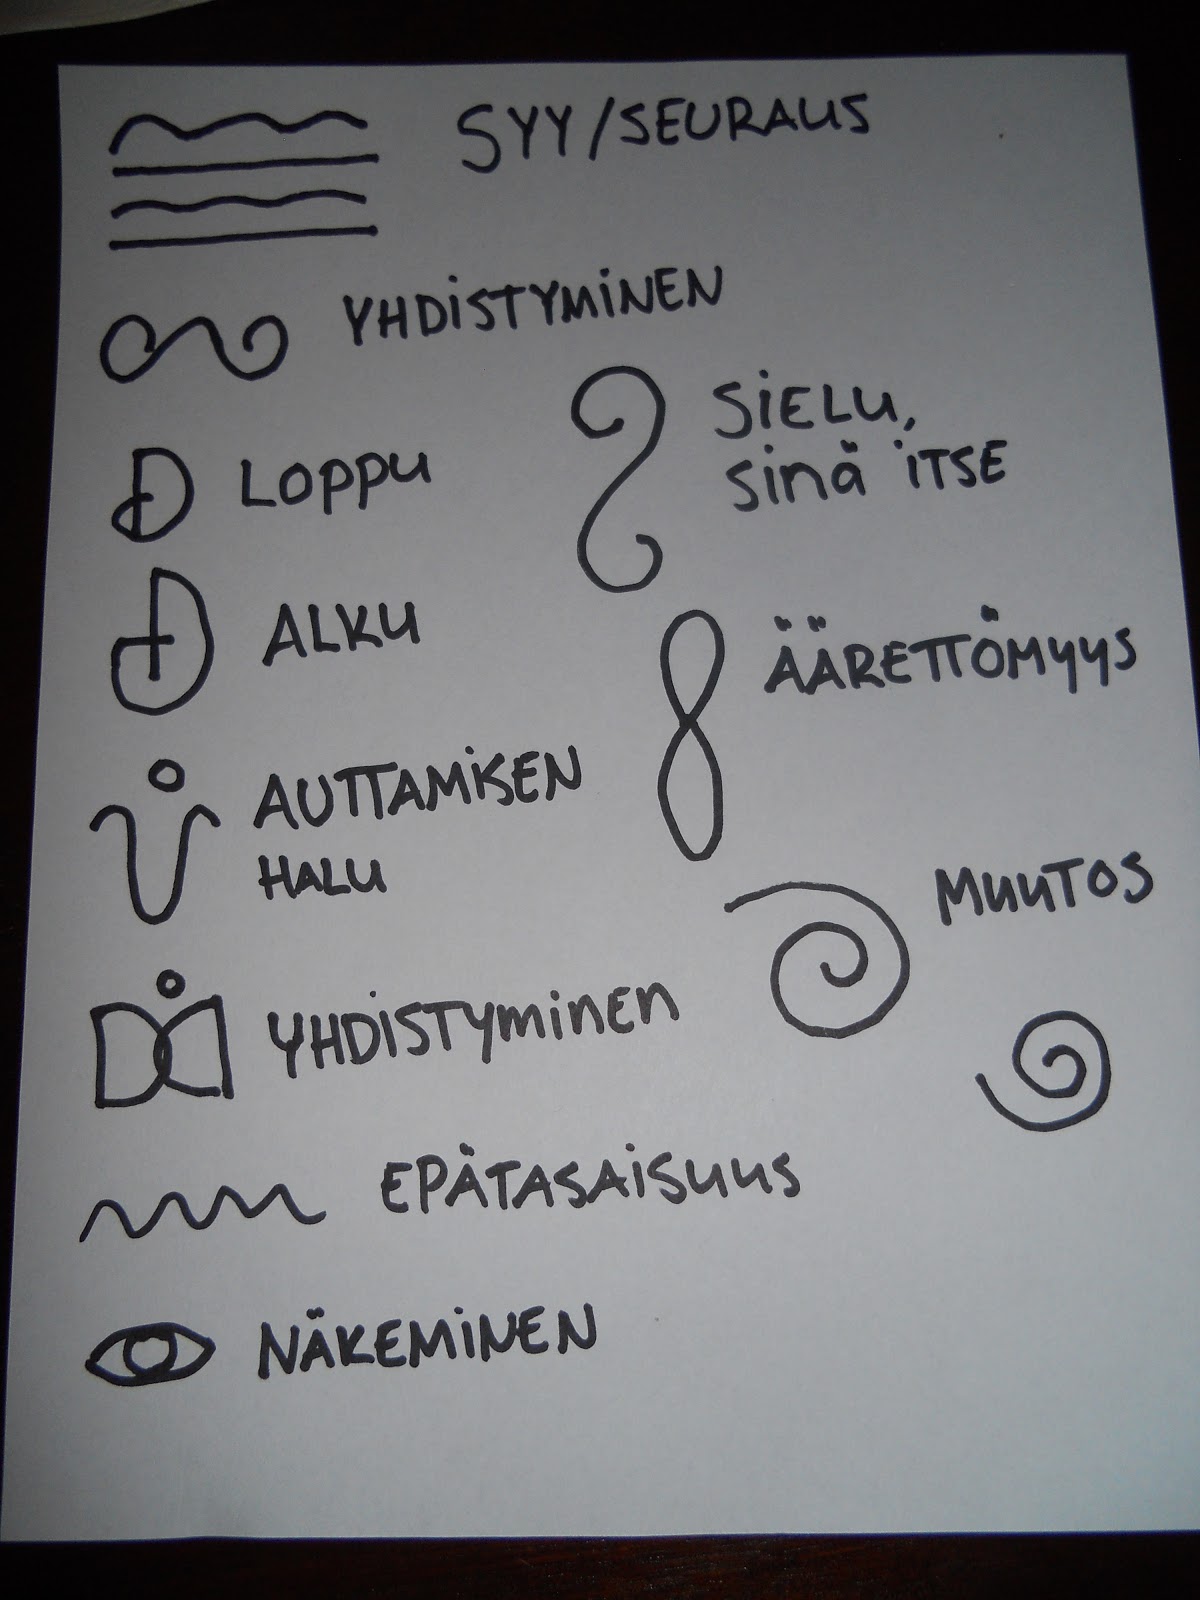 SYY/SEURAUS
YHDISTYMINEN
SIELU,
sinä itSE
LOPPU
ALKU
ÄÄRETTÖMYYS
AUTTAMISEN
HALU
MUUTOS
YHDISTYMINEN
EPÄTASAISUUS
NÄKEMINEN